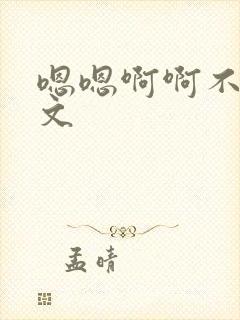 嗯嗯啊啊不
文
孟晴